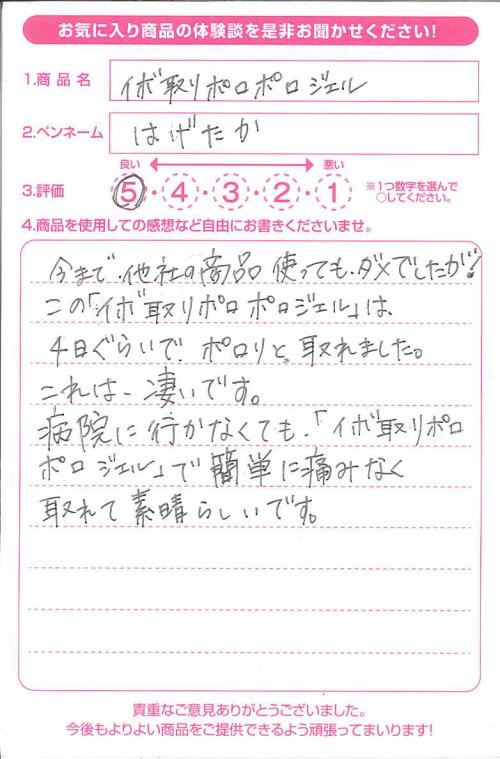 お気に入り商品の体験談を是非お聞かせください!
1.商品名 イボ取りポロポロジェル
2.ペンネーム はげたか
良い 悪い
3.評価 5・4・3・2・1 ※1つ数字を選んで
○してください。
4.商品を使用しての感想など自由にお書きくださいませ。
今まで、他社の商品使っても、ダメでしたが!
この「イボ取りポロポロジェル」は、
4日ぐらいで、ポロリと取れました。
これは、凄いです。
病院に行かなくても、「イボ取りポロ
ポロジェル」で簡単に痛みなく
取れて素晴らしいです。
貴重なご意見ありがとうございました。
今後もよりよい商品をご提供できるよう頑張ってまいります!